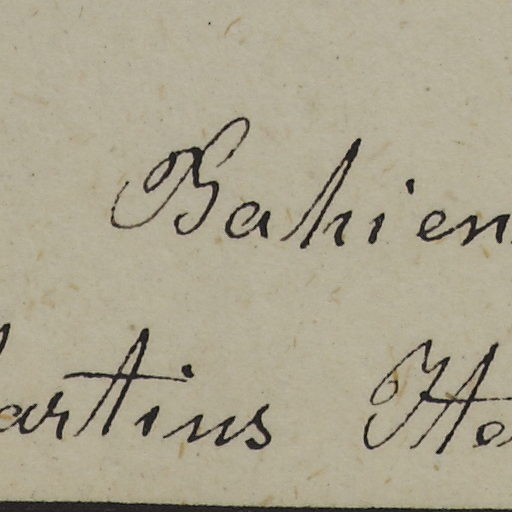 Bahien
artins He